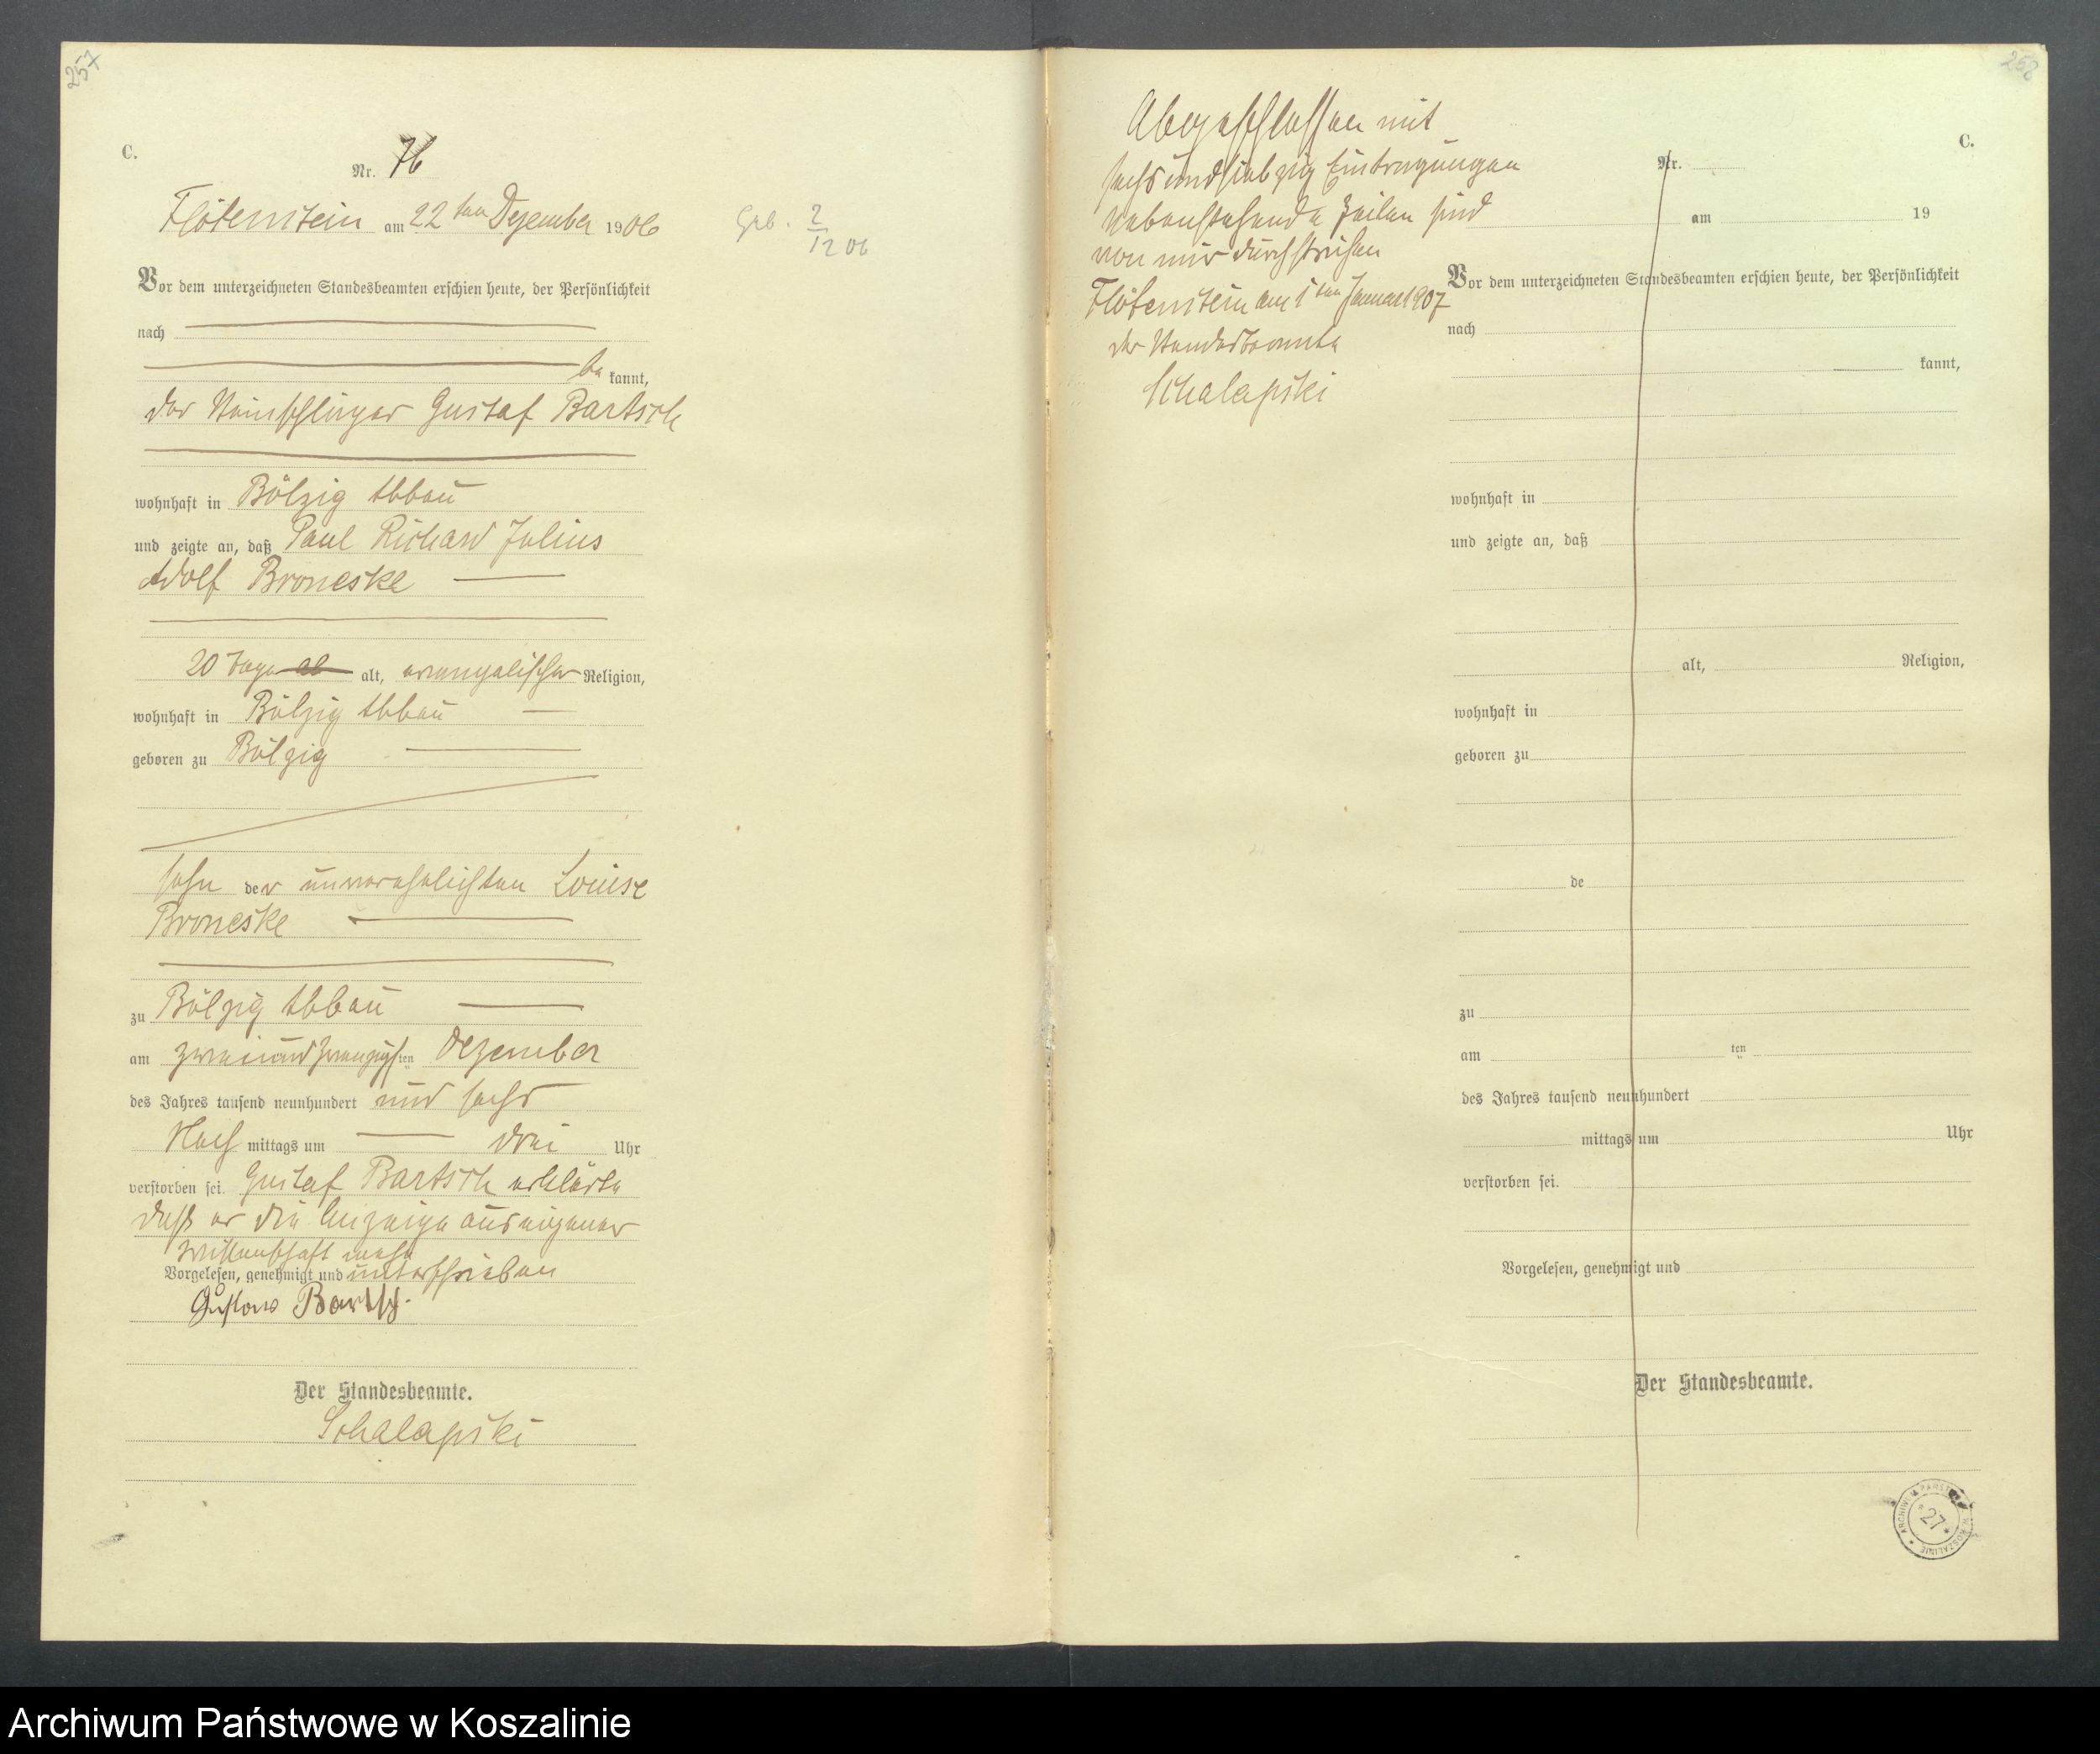 257
C.
Nr. 76
Flötenstein am 22ten Dezember 1906
Geb. 2/12 06
Vor dem unterzeichneten Standesbeamten erschien heute, der Persönlichkeit
nach
be kannt,
der Steinschläger Gustaf Bartsch
wohnhaft in Bölzig Abbau
und zeigte an, daß Paul Richard Julius
Adolf Broneske
20 Tage al alt, evangelischer Religion,
wohnhaft in Bölzig Abbau
geboren zu Bölzig
sohn der unverehelichten Louise
Broneske
zu Bölzig Abbau
am zweiundzwanzigsten Dezember
des Jahres tausend neunhundert und sechs
Nach mittags um drei Uhr
verstorben sei. Gustaf Bartsch erklärte
daß er die Anzeige aus eigener
Wissenschaft mache
Vorgelesen, genehmigt und unterschrieben
Gustav Bartsch.
Der Standesbeamte.
Schalapski
258
Abgeschlossen mit
sechsundsiebzig Eintragungen
Nebenstehende Zeilen sind
von mir durchstrichen
Flötenstein am 1ten Januar 1907
der Standesbeamte
Schalapski
C.
Nr.
am 19
Vor dem unterzeichneten Standesbeamten erschien heute, der Persönlichkeit
nach
kannt,
wohnhaft in
und zeigte an, daß
alt, Religion,
wohnhaft in
geboren zu
de
zu
am ten
des Jahres tausend neunhundert
mittags um Uhr
verstorben sei.
Vorgelesen, genehmigt und
Der Standesbeamte.
ARCHIWUM PAŃSTWOWE W KOSZALINIE
* 27 *
Archiwum Państwowe w Koszalinie